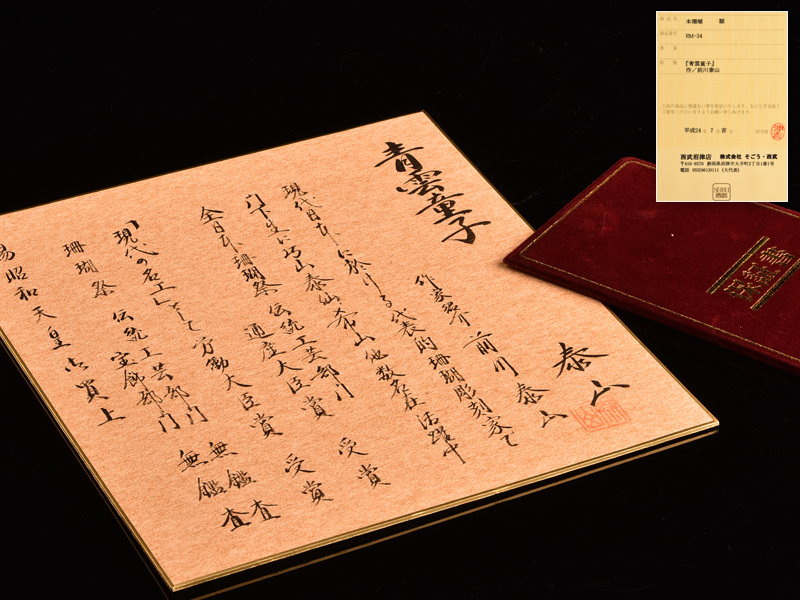 青雲童子
泰山
作家紹介 前川 泰山
現代日本に於ける代表的珊瑚彫刻家で
門下生に岳山 泰仙 希山 他数名在 活躍中
全日本珊瑚祭 伝統工芸部門 受賞
通産大臣賞 受賞
「現代の名工」として 労働大臣賞
珊瑚祭 伝統工芸部門 無鑑査
宝飾部門 無鑑査
賜昭和天皇 御買上
保証書
本珊瑚 額
RM-34
『青雲童子』
作/前川泰山
平成24年 7月 吉日
西武沼津店 株式会社 そごう・西武
〒410-8570 静岡県沼津市大手町2丁目1番1号
(大代表)